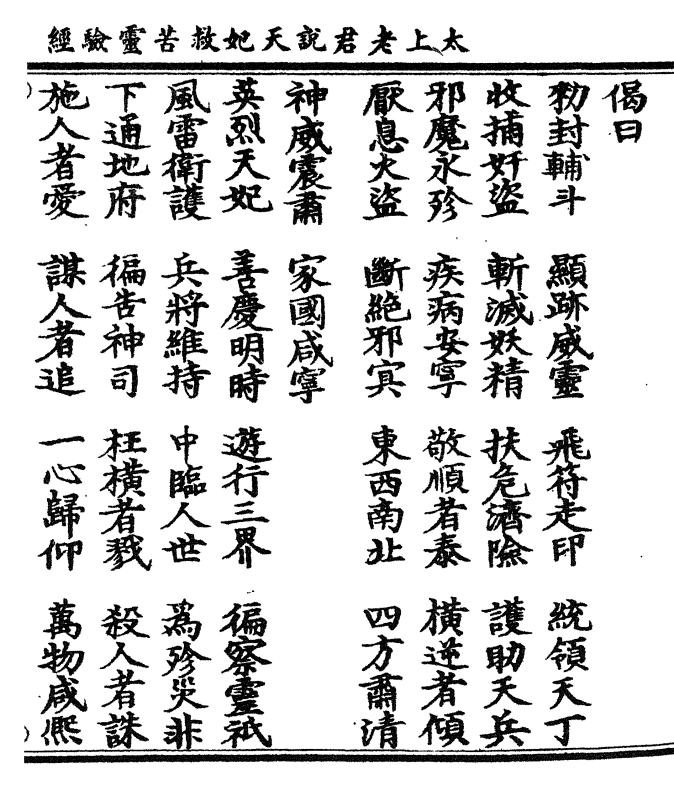 太上老君說天妃救苦靈驗經
偈曰
勑封輔斗 顯跡威靈 飛符走印 統領天丁
收捕奸盜 斬滅妖精 扶危濟險 護助天兵
邪魔永殄 疾病安寧 敬順者泰 橫逆者傾
厭息火盜 斷絕邪冥 東西南北 四方肅清
神威震肅 家國咸寧
英烈天妃 善慶明時 遊行三界 徧察靈祇
風雷衛護 兵將維持 中臨人世 為殄災非
下通地府 徧告神司 枉橫者戮 殺人者誅
施人者愛 謀人者追 一心歸仰 萬物咸熈